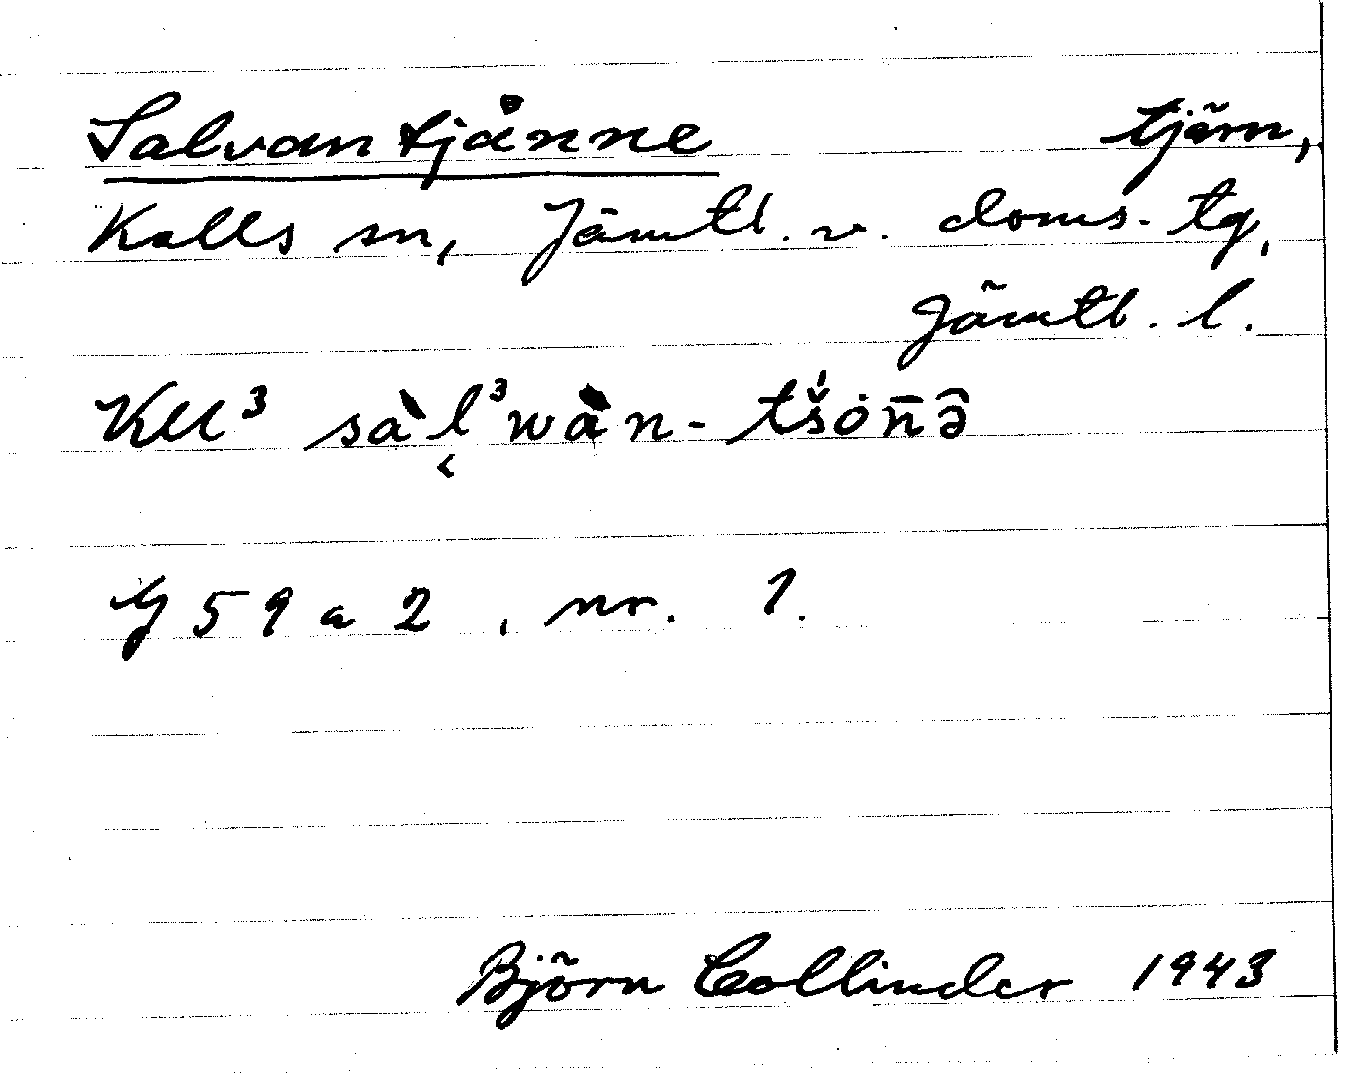 Salvantjånne tjärn,
Kalls sn, Jämtl. v. doms. tg,
Jämtl. l.
KU³ sàl̬³wàn-tš́ȯn̄ə̑
G 59 a 2, nr. 1.
Björn Collinder 1943